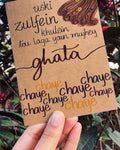 uski
zulfein
khulein
tou laga yuun mujhey
ghata
chaye
chaye chaye
chaye chaye
chaye chaye
chaye